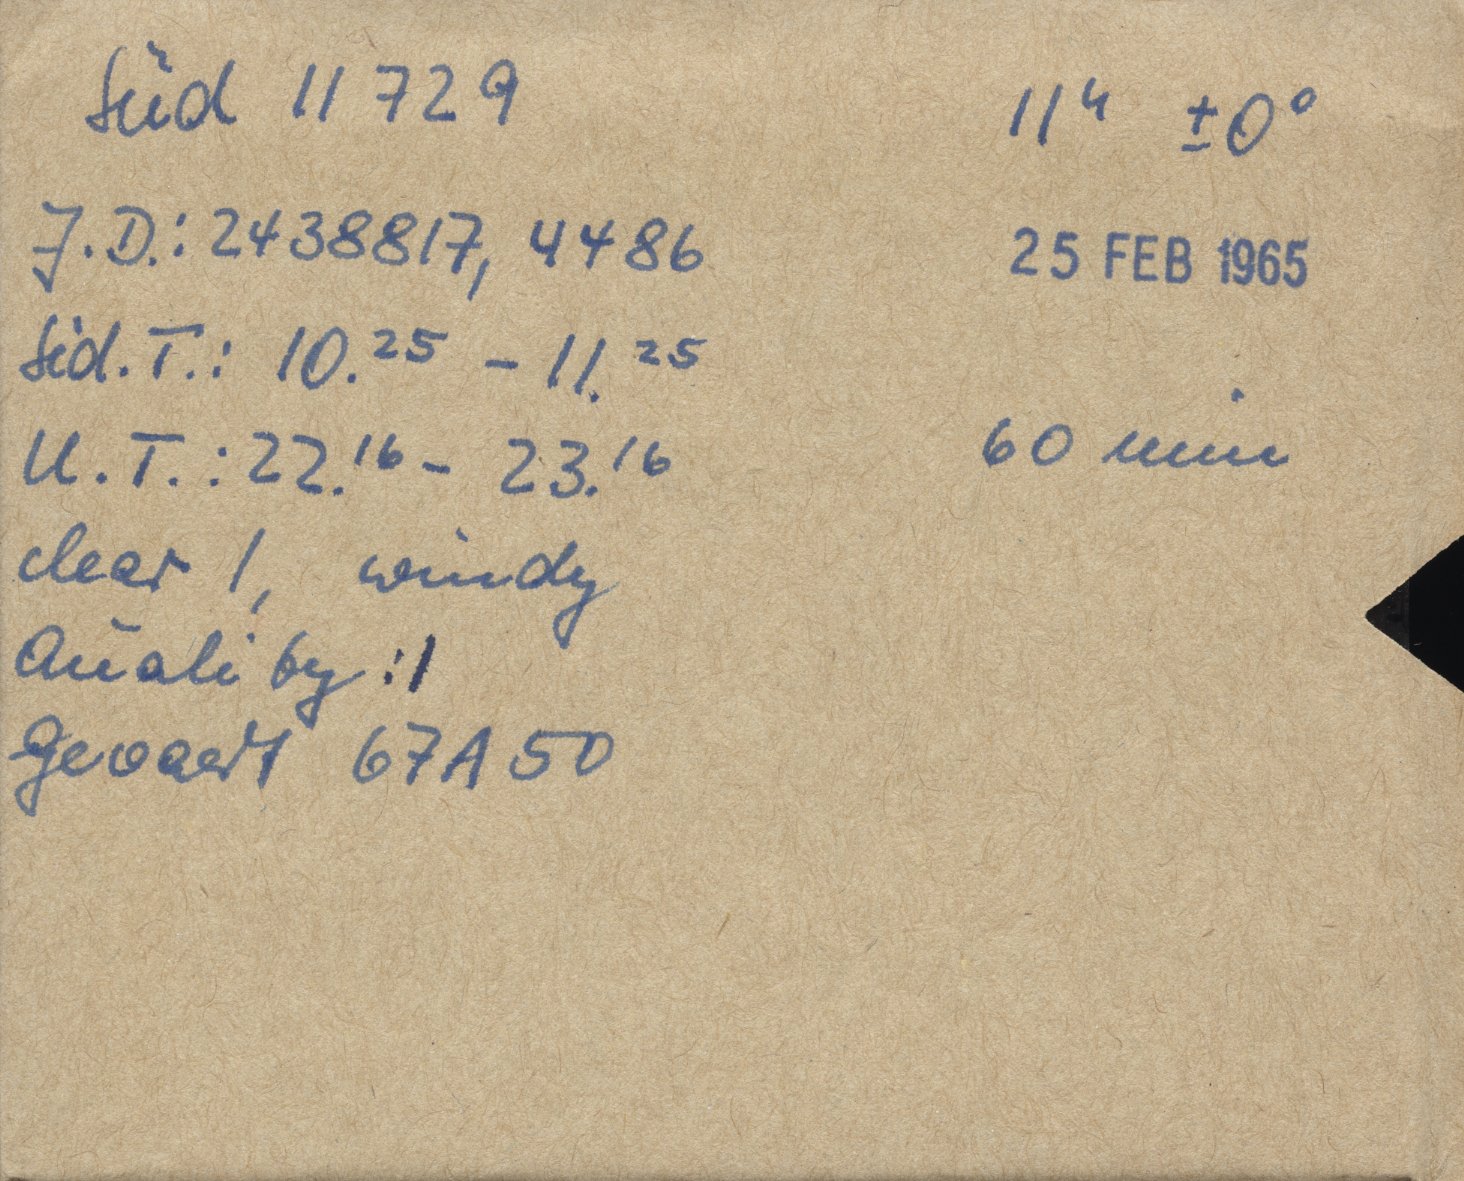 Süd 11729 11ʰ ±0°
J.D.: 2438817,4486 25 FEB 1965
Sid.T.: 10.²⁵ - 11.²⁵
U.T.: 22.¹⁶ - 23.¹⁶ 60 min
clear 1, windy
Quality: 1
Gevaert 67A50